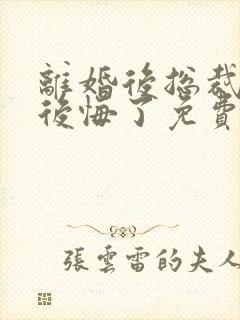 離婚後總裁
後悔了免費
張雲雷的夫人